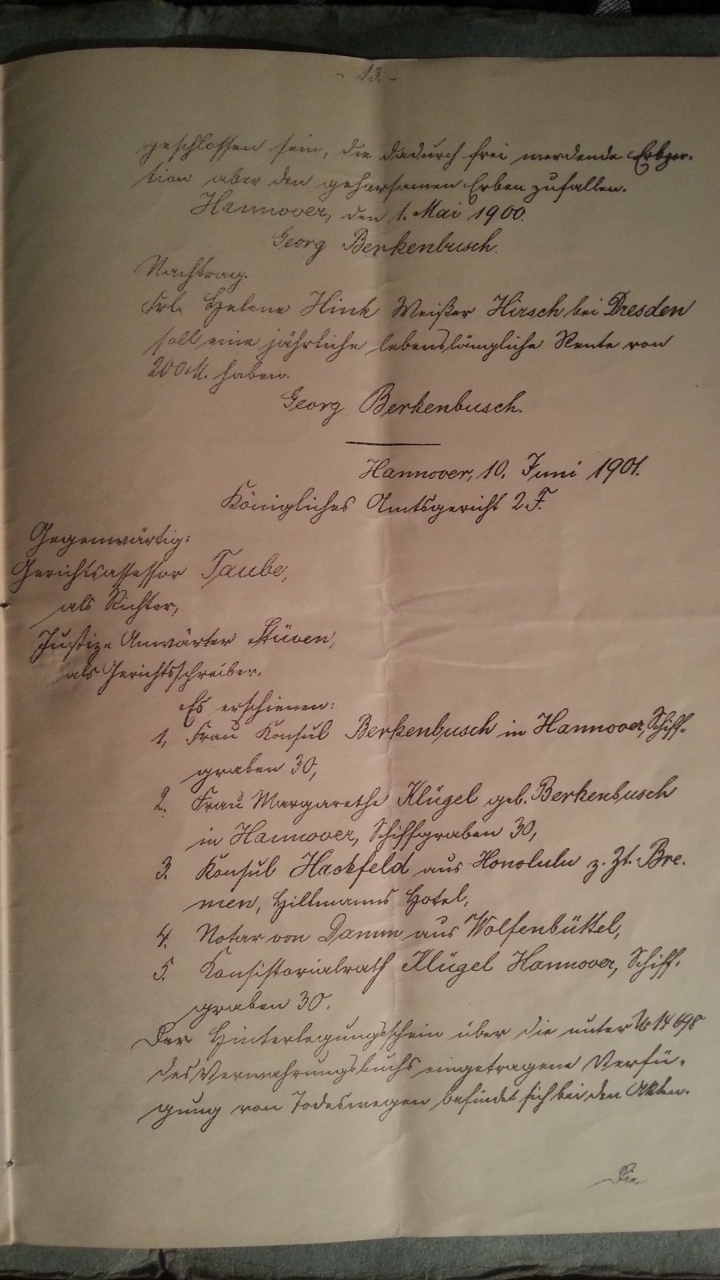 - 13. -
geschlossen sein, die dadurch frei werdende Erbpor-
tion aber den gehorsamen Erben zufallen.
Hannover, den 1. Mai 1900.
Georg Berkenbusch.
Nachtrag.
Frl. Helene Hink Weißer Hirsch bei Dresden
soll eine jährliche lebenslängliche Rente von
200 M. haben.
Georg Berkenbusch.
Hannover, 10. Juni 1901.
Königliches Amtsgericht 2 F.
Gegenwärtig:
Gerichtsassessor Taube,
als Richter,
Justiz-Anwärter Stüven,
als Gerichtsschreiber.
Es erschienen:
1. Frau Konsul Berkenbusch in Hannover, Schiff-
graben 30,
2. Frau Margarethe Klügel geb. Berkenbusch
in Hannover, Schiffgraben 30,
3. Konsul Hackfeld aus Honolulu z. Zt. Bre-
men, Hillmanns Hotel,
4. Notar von Damm aus Wolfenbüttel,
5. Konsistorialrath Klügel Hannover, Schiff-
graben 30.
Der Hinterlegungsschein über die unter № 14698
des Verwahrungsbuchs eingetragene Verfü-
gung von Todeswegen befindet sich bei den Akten.
Die